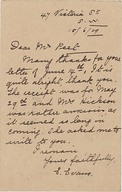 47 Victoria St
S.W
10/6/09
Dear Mr Rest
Many thanks for your
letter of June 4th, it is
quite alright. Thank you.
The receipt was for May
29th and Mr Hickson
was rather anxious as
it seemed so long in
coming. She asked me to
write to you.
I remain
Yours faithfully,
E. Evans.